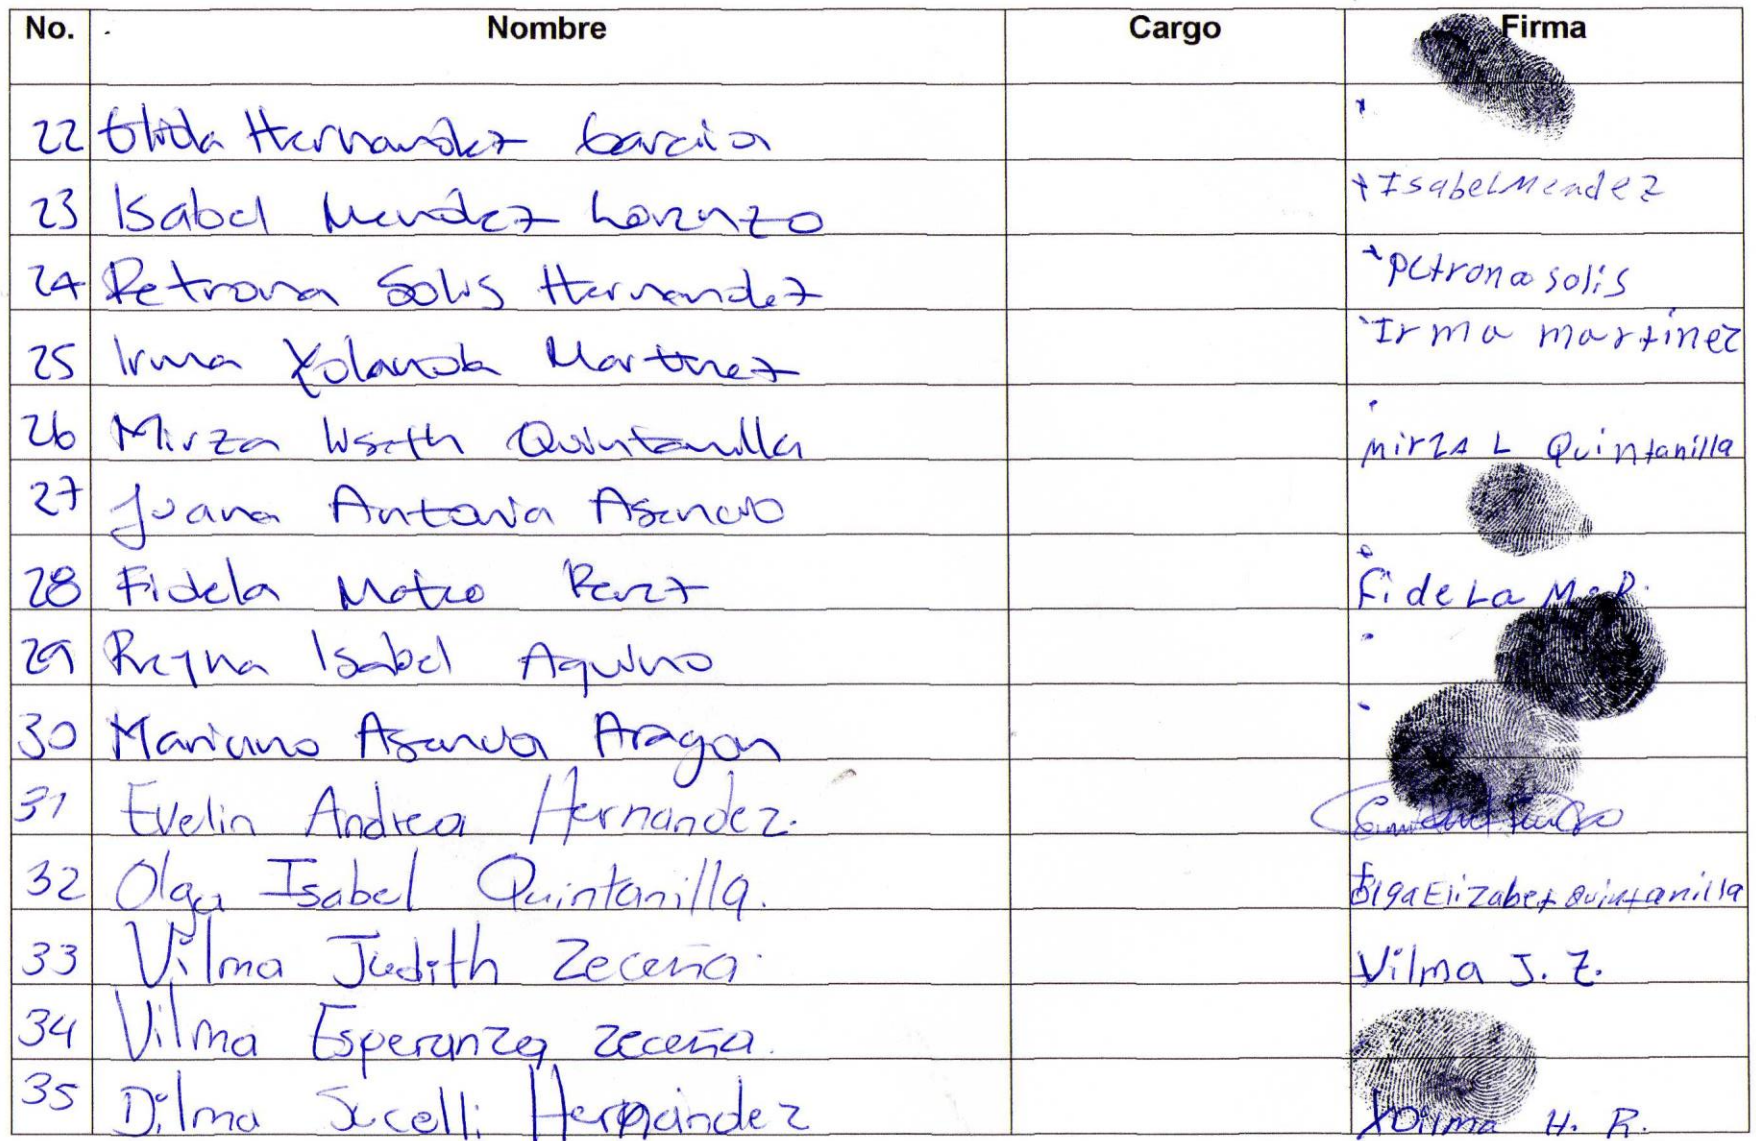 No. Nombre Cargo Firma
22 Elida Hernandez Garcia
23 Isabel Mendez Lorenzo Isabel Mendez
24 Petrona Solis Hernandez Petrona solis
25 Irma Yolanda Martinez Irma martinez
26 Mirza Liseth Quintanilla MirzA L Quintanilla
27 Juana Antonia Asencio
28 Fidela Mateo Perez FideLa M. P.
29 Reyna Isabel Aquino
30 Mariano Asencio Aragon
31 Evelin Andrea Hernandez.
32 Olga Isabel Quintanilla. Olga Elizabet Quintanilla
33 Vilma Judith Zeceña. Vilma J. Z.
34 Vilma Esperanza zeceña.
35 Dilma Sucelli Hernández Dilma H. R.